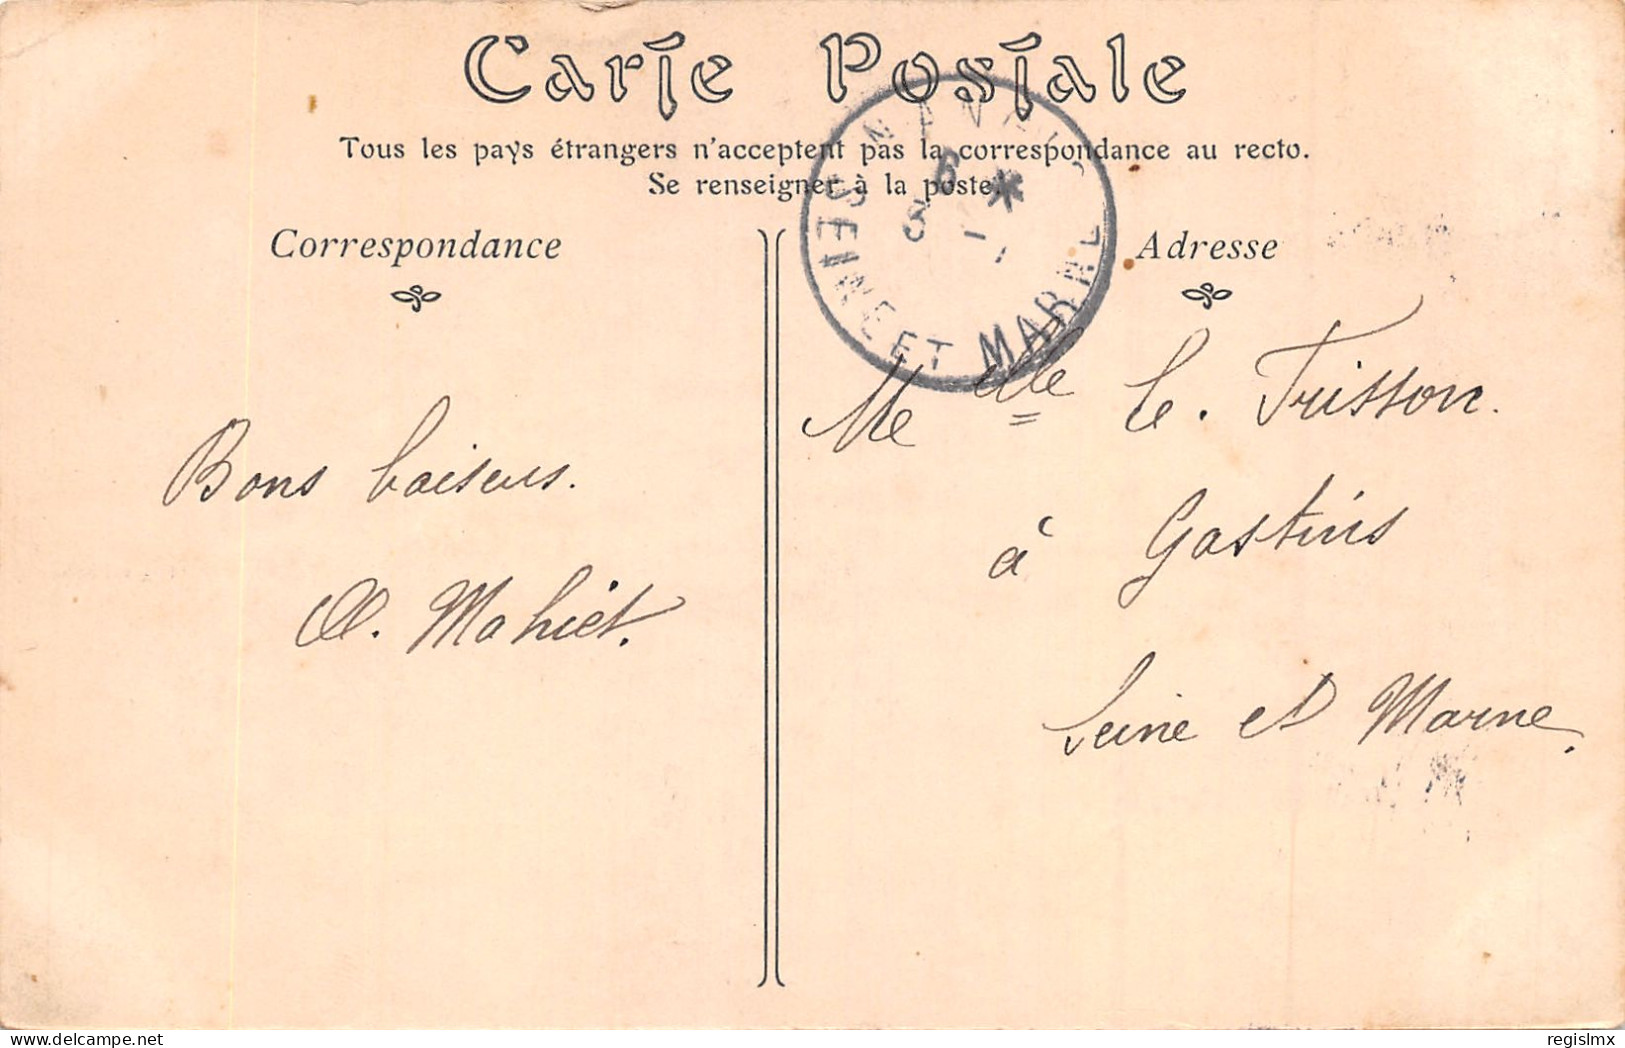 Carte Postale
Tous les pays étrangers n'acceptent pas la correspondance au recto.
Se renseigner à la poste.
NANGIS
SEINE ET MARNE
Correspondance
Adresse
Bons baisers.
A. Mahiet.
Melle C. Trisson.
à Gastins
Seine et Marne.
regislmx